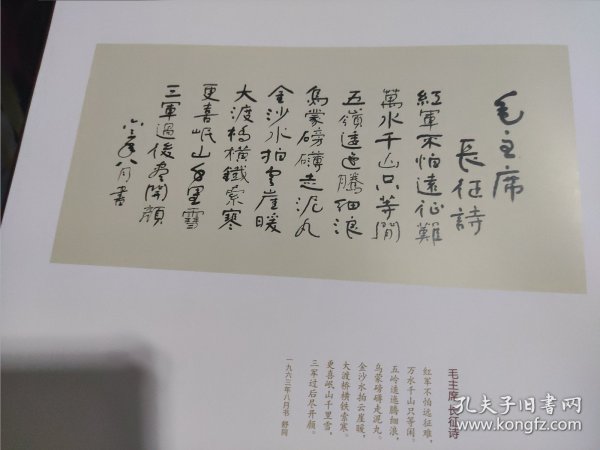 毛主席
長征詩
紅軍不怕遠征難
萬水千山只等閒
五嶺逶迤騰細浪
烏蒙磅礴走泥丸
金沙水拍雲崖暖
大渡橋橫鐵索寒
更喜岷山千里雪
三軍過後盡開顏
六三年八月書
毛主席长征诗
红军不怕远征难，
万水千山只等闲。
五岭逶迤腾细浪，
乌蒙磅礴走泥丸。
金沙水拍云崖暖，
大渡桥横铁索寒。
更喜岷山千里雪，
三军过后尽开颜。
一九六三年八月书 舒同
孔夫子旧书网
www.kongfz.com